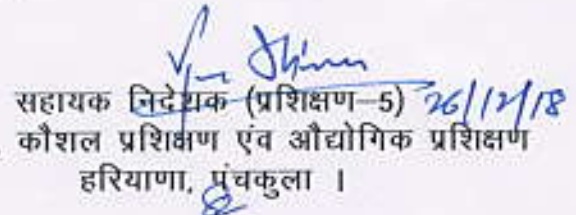 सहायक निदेशक (प्रशिक्षण–5) 26/12/18
कौशल प्रशिक्षण एंव औद्योगिक प्रशिक्षण
हरियाणा, पंचकुला ।